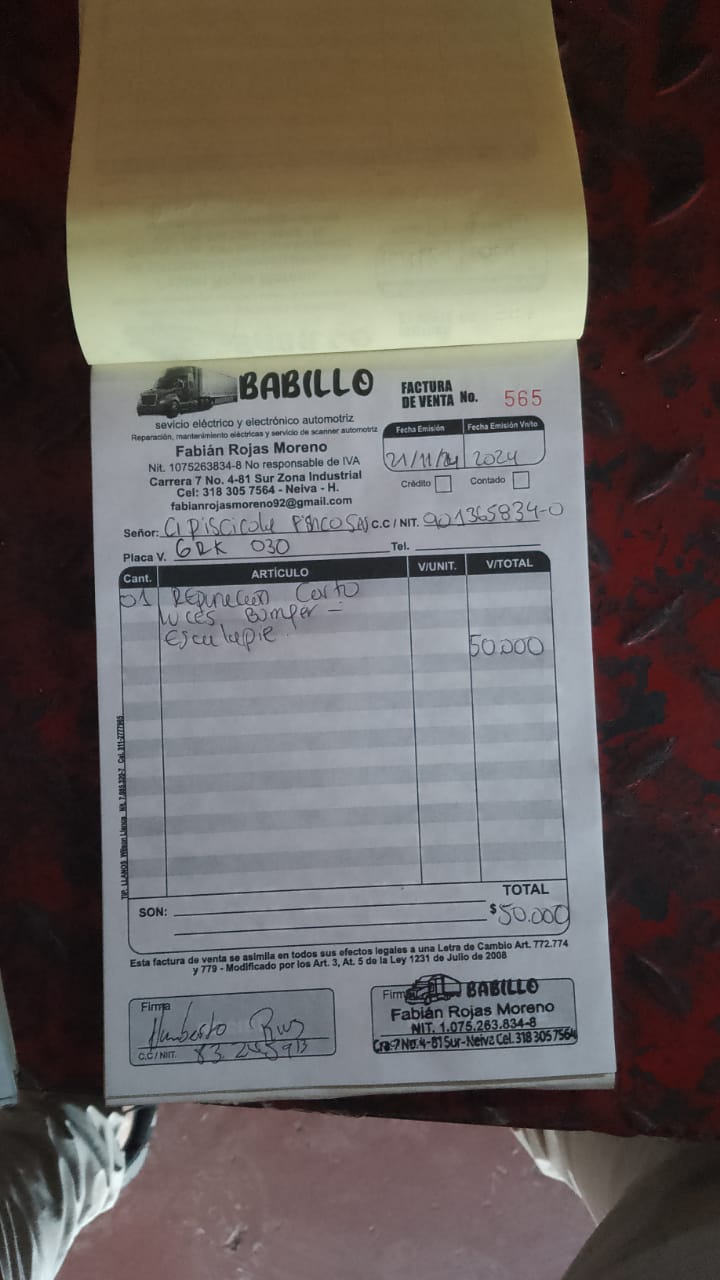 BABILLO
FACTURA
DE VENTA No. 565
sevicio eléctrico y electrónico automotriz
Reparación, mantenimiento eléctricas y servicio de scanner automotriz
Fabián Rojas Moreno
Nit. 1075263834-8 No responsable de IVA
Carrera 7 No. 4-81 Sur Zona Industrial
Cel: 318 305 7564 - Neiva - H.
fabianrojasmoreno92@gmail.com
Fecha Emisión Fecha Emisión Vnito
21/11/24 2024
Crédito Contado
Señor: CI Piscicola Piscosas C.C / NIT. 901365834-0
Placa V. GRK 030 Tel.
Cant. ARTÍCULO V/UNIT. V/TOTAL
01 Reparacion Corto
luces Bomper -
Escalapie 50.000
TIP. LLANOS
TOTAL
SON: $ 50.000
Esta factura de venta se asimila en todos sus efectos legales a una Letra de Cambio Art. 772.774
y 779 - Modificado por los Art. 3, At. 5 de la Ley 1231 de Julio de 2008
Firma
Humberto
C.C / NIIT.
Firma BABILLO
Fabián Rojas Moreno
NIT. 1.075.263.834-8
Cra. 7 No. 4-81 Sur-Neiva Cel. 318 305 7564